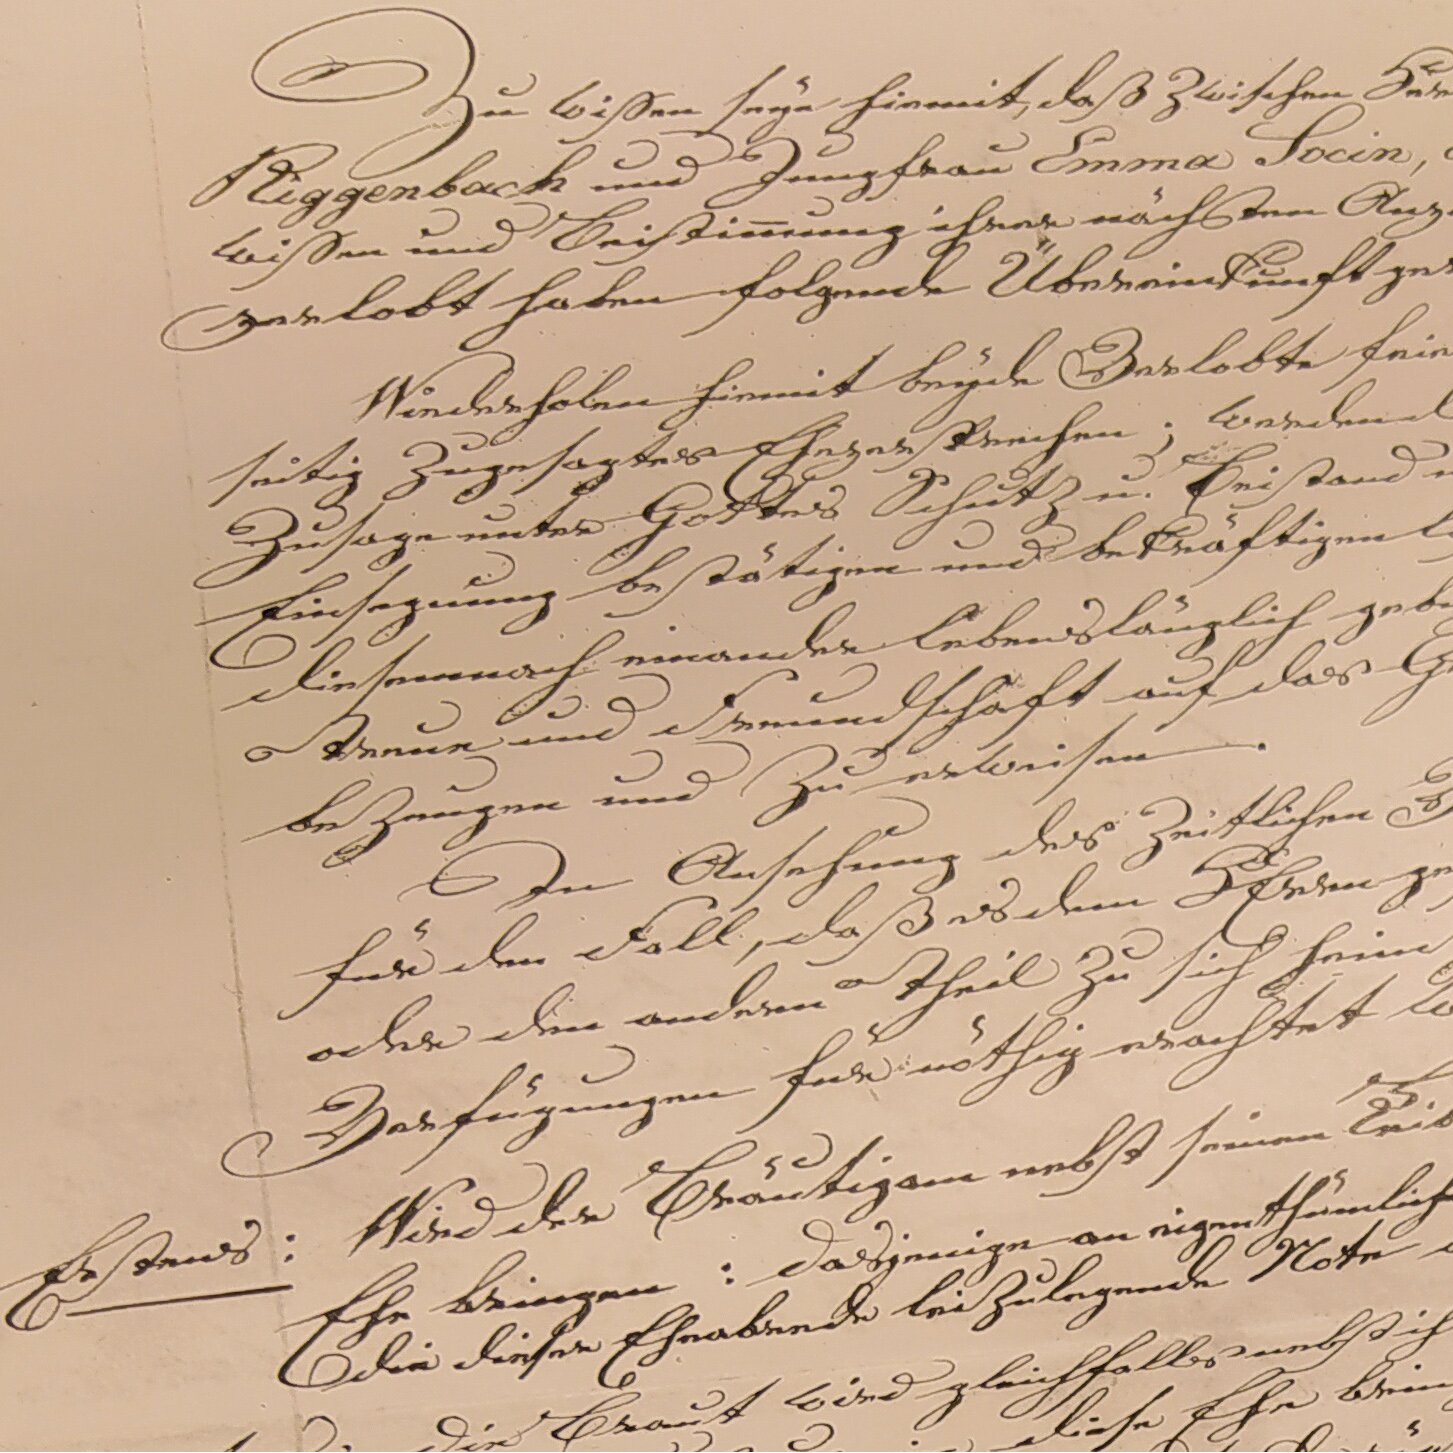 Zu wissen seye hiermit, daß zwischen Herr
Riggenbach und Jungfrau Emma Socin,
wissen und Beistimmung ihrer nächsten Anv
verlobt haben folgende Übereinkunft get
Wiederholen hiermit beÿde Verlobte feie
seitig zugesagtes Eheversprechen; werden d
Zusage unter Gottes Schutz u. Beistand
Einsegnung bestätigen und bekräftigen l
diesemnach einander lebenslänglich geb
Treue und Freundschaft auf das Ge
bezeugen und zu erweisen.
In Ansehung des Zeitlichen
für den Fall, daß es dem HErrn ge
oder den andern Theil zu sich heim
Verfügungen für nöthig erachtet w
Erstens: Wird der Bräutigam nebst seinem Leib
Ehe bringen: dasjenige an eigenthümlich
die dieser Eheabrede beizulegende Note
die Braut wird gleichfalls nebst ih
diese Ehe brin